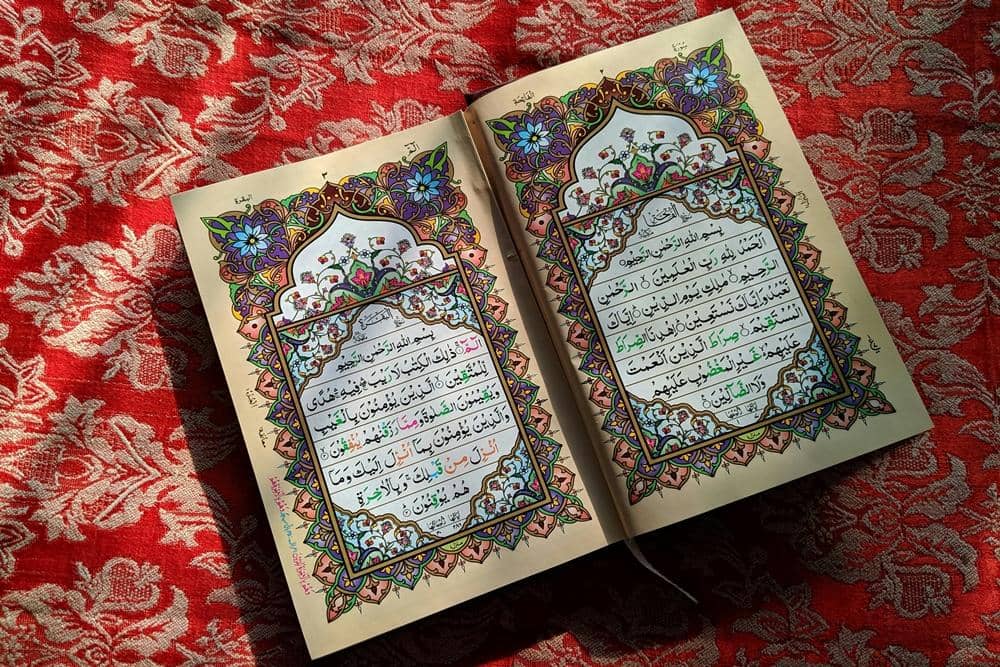 سورة
٢
الفاتحة
بِسْمِ اللهِ الرَّحْمٰنِ الرَّحِيْمِ
اَلْحَمْدُ لِلّٰهِ رَبِّ الْعٰلَمِيْنَ ۝ الرَّحْمٰنِ
الرَّحِيْمِ ۝ مٰلِكِ يَوْمِ الدِّيْنِ ۝ اِيَّاكَ
نَعْبُدُ وَاِيَّاكَ نَسْتَعِيْنُ ۝ اِهْدِنَا الصِّرَاطَ
الْمُسْتَقِيْمَ ۝ صِرَاطَ الَّذِيْنَ اَنْعَمْتَ
عَلَيْهِمْ ۝ غَيْرِ الْمَغْضُوْبِ عَلَيْهِمْ
وَلَا الضَّآلِّيْنَ ۝
الم
٣
البقرة
بِسْمِ اللهِ الرَّحْمٰنِ الرَّحِيْمِ
الٓمّٓ ۝ ذٰلِكَ الْكِتٰبُ لَا رَيْبَ فِيْهِ هُدًى
لِّلْمُتَّقِيْنَ ۝ الَّذِيْنَ يُؤْمِنُوْنَ بِالْغَيْبِ
وَيُقِيْمُوْنَ الصَّلٰوةَ وَمِمَّا رَزَقْنٰهُمْ يُنْفِقُوْنَ ۝
وَالَّذِيْنَ يُؤْمِنُوْنَ بِمَآ اُنْزِلَ اِلَيْكَ وَمَآ
اُنْزِلَ مِنْ قَبْلِكَ وَبِالْاٰخِرَةِ
هُمْ يُوْقِنُوْنَ ۝